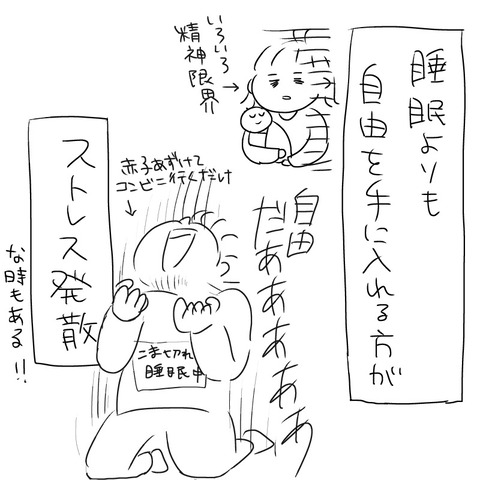 睡眠よりも
自由を手に入れる方が
いろいろ
精神限界
自由
だぁあああああ
赤子あずけて
コンビニ行くだけ
こま切れ
睡眠中
ストレス発散
な時もある!!